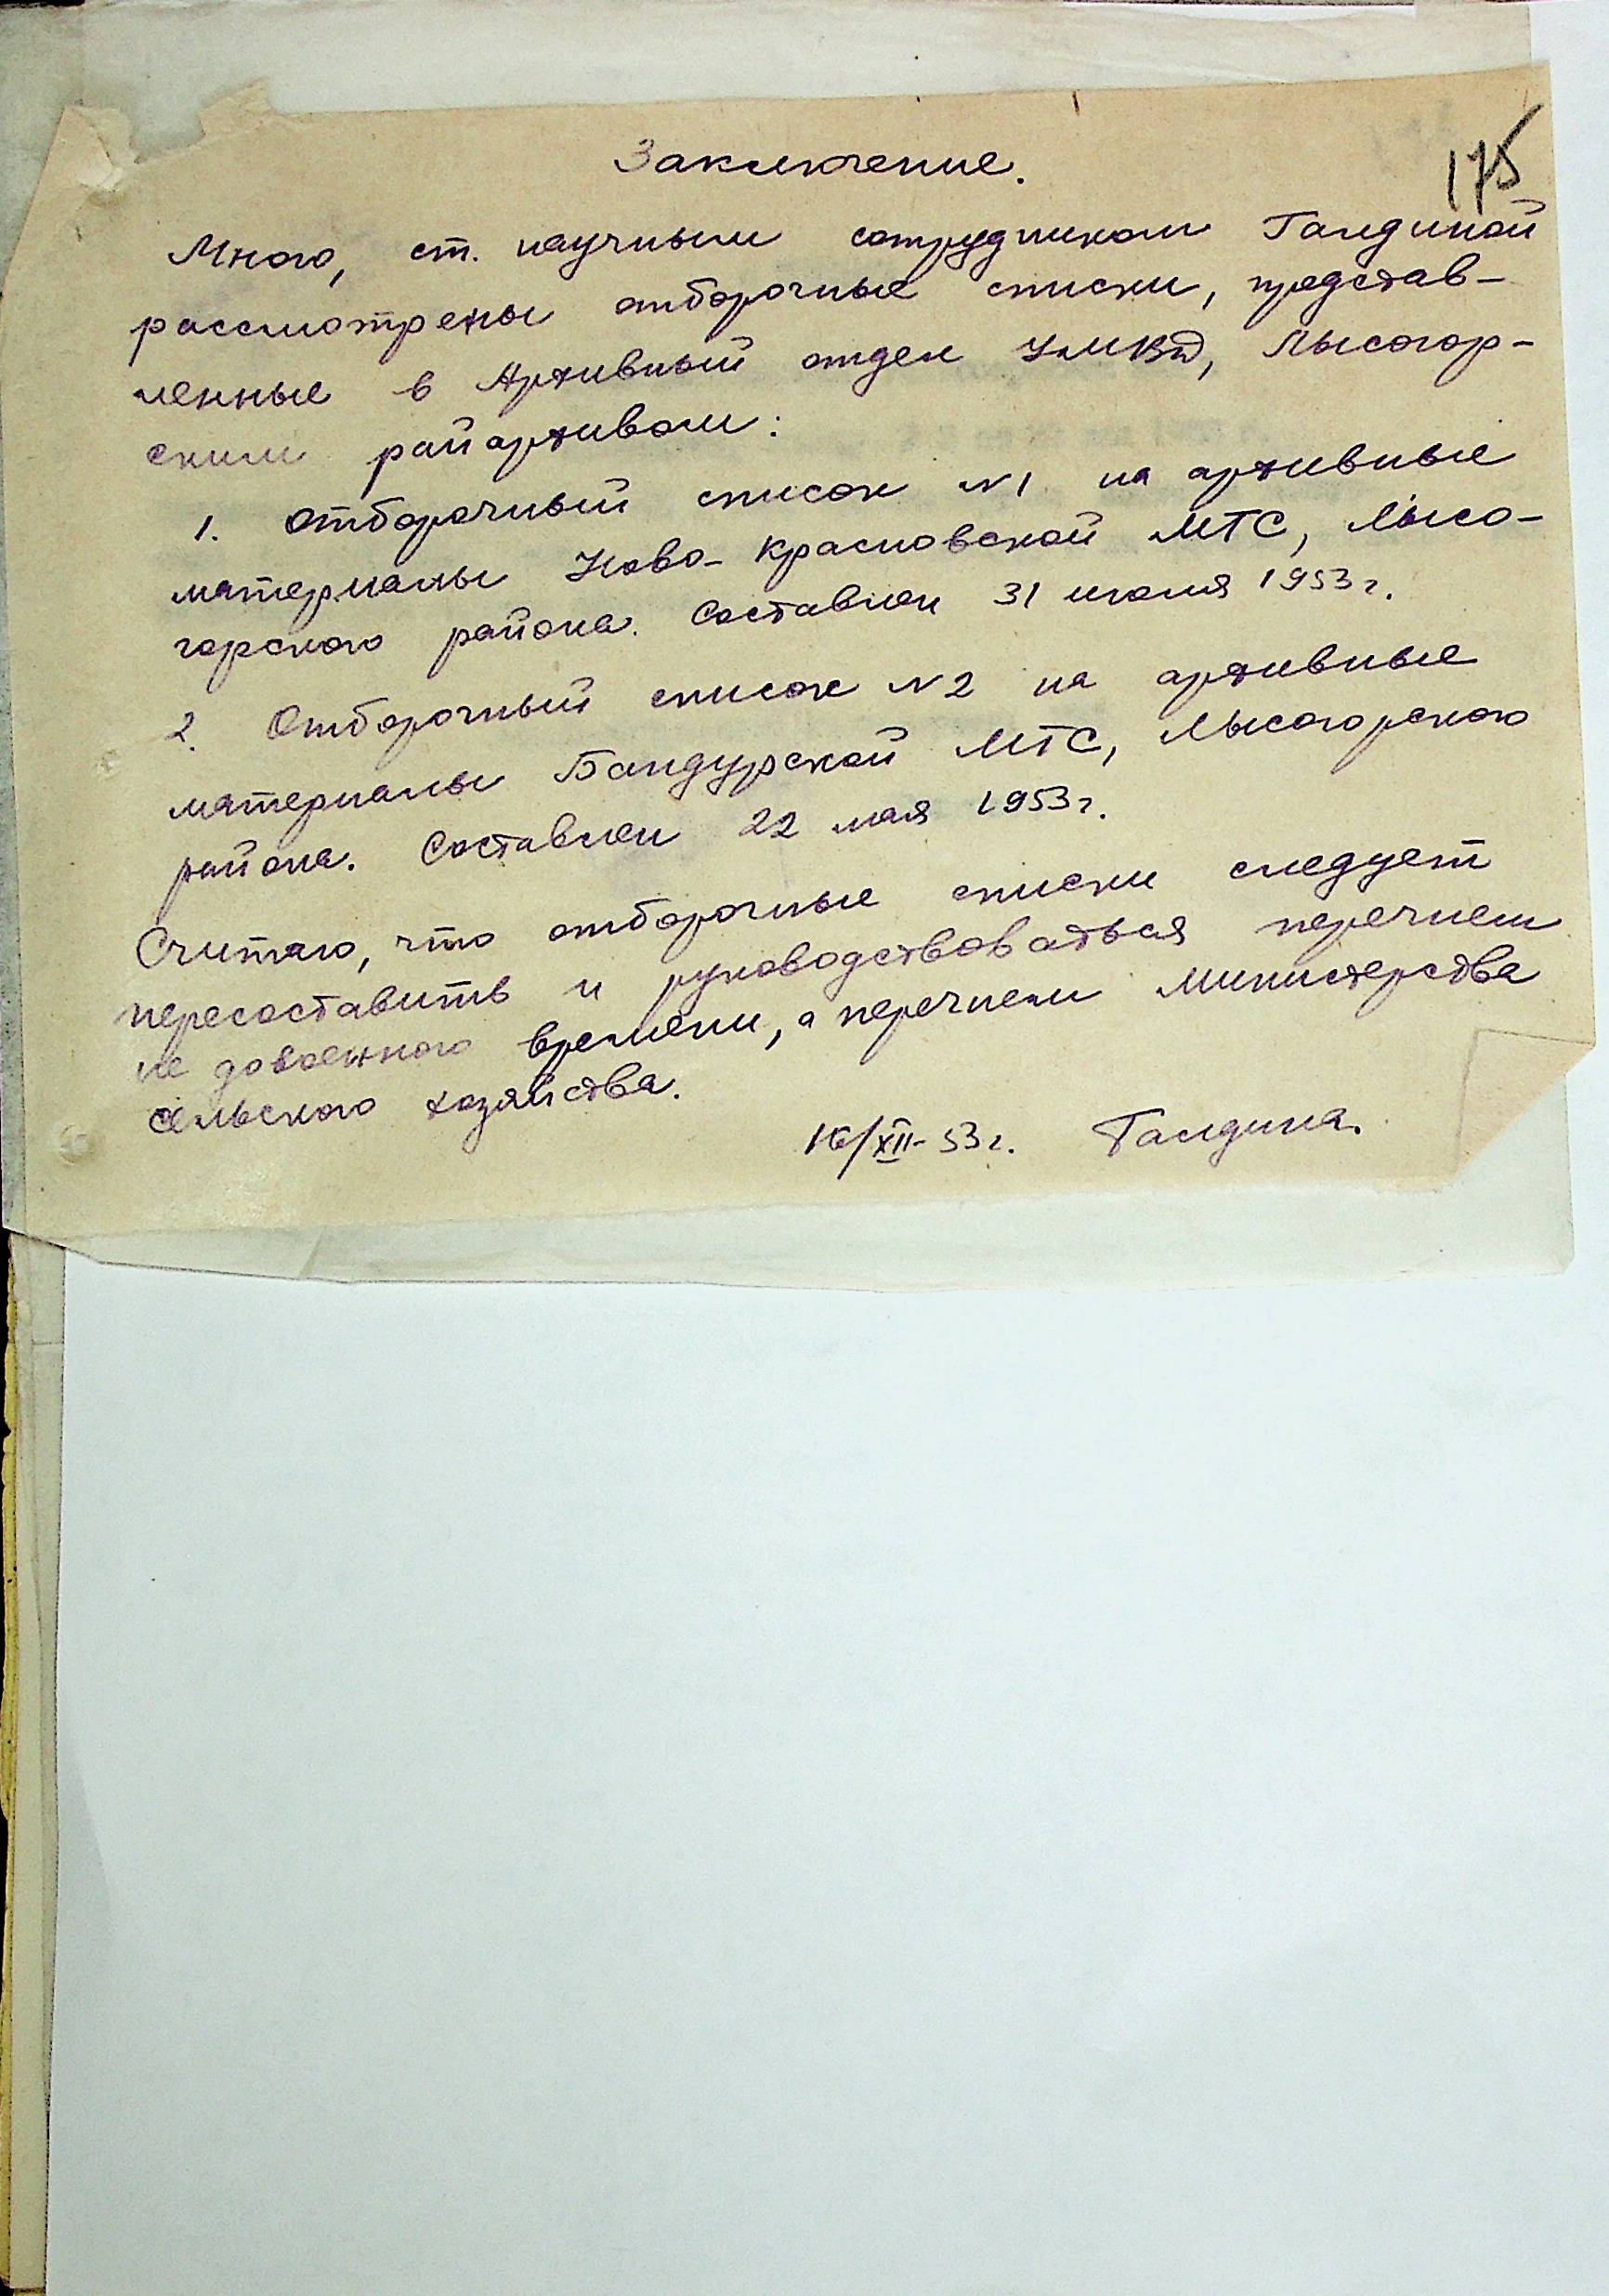 175
Заключение.
Мною, ст. научным сотрудником Галдиной
рассмотрены отборочные списки, представ-
ленные в Архивный отдел УМВД, Лысогор-
ским райархивом:
1. Отборочный список №1 на архивные
материалы Ново-Красновской МТС, Лысо-
горского района. Составлен 31 июля 1953 г.
2. Отборочный список №2 на архивные
материалы Бандурской МТС, Лысогорского
района. Составлен 22 мая 1953 г.
Считаю, что отборочные списки следует
пересоставить и руководствоваться перечнем
не довоенного времени, а перечнем министерства
сельского хозяйства.
16/XII-53 г. Галдина.